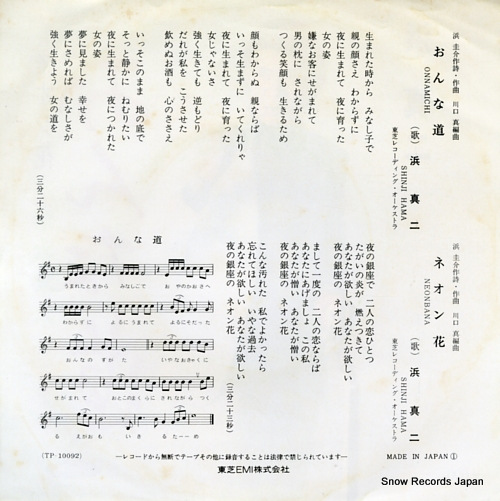 浜 圭介作詩・作曲 川口 真編曲
おんな道
ONNAMICHI
(歌) 浜 真二
SHINJI HAMA
東芝レコーディング・オーケストラ
生まれた時から みなし子で
親の顔さえ わからずに
夜に生まれて 夜に育った
女の姿
嫌なお客にせがまれて
男の枕に されながら
つくる笑顔も 生きるため
顔もわからぬ 親ならば
いっそ生まずに いてくれりゃ
夜に生まれて 夜に育った
女じゃないさ
強く生きても 逆もどり
だれが私を こうさせた
飲めぬお酒も 心のささえ
いっそこのまま 地の底で
そっと静かに ねむりたい
夜に生まれて 夜につかれた
女の姿
夢に見ました 幸せを
夢にさめれば むなしさが
強く生きよう 女の道を
(三分二十六秒)
浜 圭介作詩・作曲 川口 真編曲
ネオン花
NEONBANA
(歌) 浜 真二
SHINJI HAMA
東芝レコーディング・オーケストラ
夜の銀座で 二人の恋ひとつ
たがいの炎が 燃えつきて
あなたが欲しい あなたが欲しい
夜の銀座の ネオン花
まして一度の 二人の恋ならば
あなたにあげましょ この私
あなたが憎い あなたが憎い
夜の銀座の ネオン花
こんな汚れた 私でよかったら
忘れてほしい いやな過去
あなたが欲しい あなたが欲しい
夜の銀座の ネオン花
(三分二十三秒)
おんな道
うまれたときから みなしごで おやのかおさへ
わからずに よるにうまれて よるにそだった
おんなのすがた いやなおきゃくに
せがまれて おとこのまくらに されながらつく
るえがおも いきるたーーめ
(TP-10092)
―レコードから無断でテープその他に録音することは法律で禁じられています―
東芝EMI株式会社
MADE IN JAPAN ①
Snow Records Japan